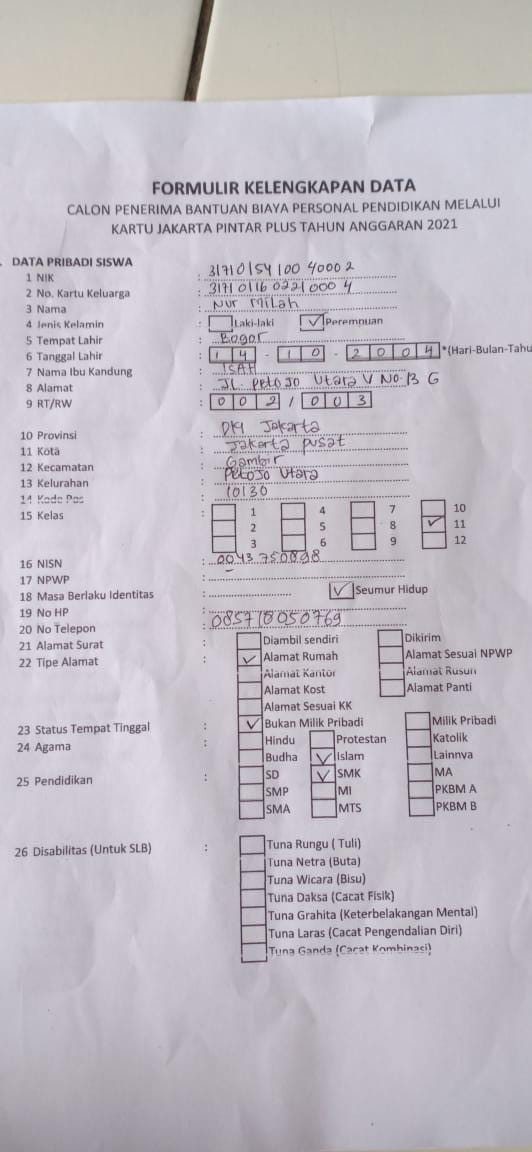 FORMULIR KELENGKAPAN DATA
CALON PENERIMA BANTUAN BIAYA PERSONAL PENDIDIKAN MELALUI
KARTU JAKARTA PINTAR PLUS TAHUN ANGGARAN 2021
DATA PRIBADI SISWA
1 NIK :
2 No. Kartu Keluarga :
3 Nama : Nur Milah
4 Jenis Kelamin : Laki-laki ✓ Perempuan
5 Tempat Lahir : Bogor
6 Tanggal Lahir : 14 - 10 - 2004 *(Hari-Bulan-Tahu
7 Nama Ibu Kandung : ISAH
8 Alamat : JL. Petojo Utara V No. 13 G
9 RT/RW : 002 / 003
10 Provinsi : DKI Jakarta
11 Kota : Jakarta pusat
12 Kecamatan : Gambir
13 Kelurahan : Petojo Utara
14 Kode Pos : 10130
15 Kelas : 1 4 7 10
2 5 8 ✓ 11
3 6 9 12
16 NISN : 0043750898
17 NPWP : –
18 Masa Berlaku Identitas : ✓ Seumur Hidup
19 No HP :
20 No Telepon :
21 Alamat Surat : Diambil sendiri Dikirim
22 Tipe Alamat : ✓ Alamat Rumah Alamat Sesuai NPWP
Alamat Kantor Alamat Rusun
Alamat Kost Alamat Panti
Alamat Sesuai KK
23 Status Tempat Tinggal : ✓ Bukan Milik Pribadi Milik Pribadi
24 Agama : Hindu Protestan Katolik
Budha ✓ Islam Lainnya
25 Pendidikan : SD ✓ SMK MA
SMP MI PKBM A
SMA MTS PKBM B
26 Disabilitas (Untuk SLB) : Tuna Rungu ( Tuli)
Tuna Netra (Buta)
Tuna Wicara (Bisu)
Tuna Daksa (Cacat Fisik)
Tuna Grahita (Keterbelakangan Mental)
Tuna Laras (Cacat Pengendalian Diri)
Tuna Ganda (Cacat Kombinasi)